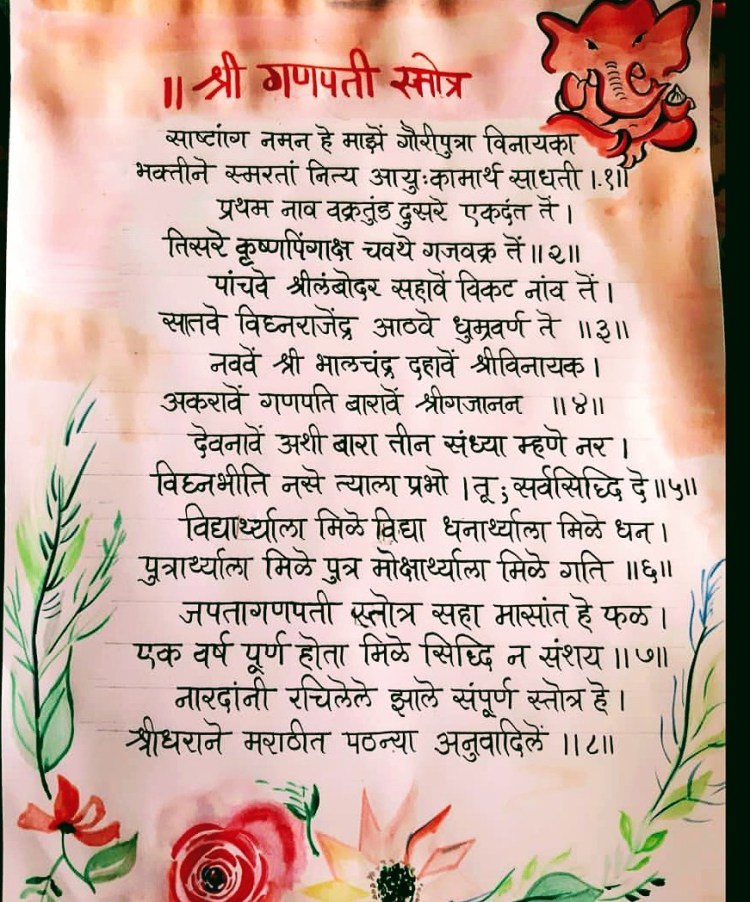 ॥ श्री गणपती स्तोत्र
साष्टांग नमन हे माझें गौरीपुत्रा विनायका
भक्तीने स्मरतां नित्य आयुःकामार्थ साधती ।.१॥
प्रथम नाव वक्रतुंड दुसरे एकदंत तें ।
तिसरे कृष्णपिंगाक्ष चवथे गजवक्र तें ॥२॥
पांचवे श्रीलंबोदर सहावें विकट नांव तें ।
सातवे विघ्नराजेंद्र आठवे धुम्रवर्ण ते ॥३॥
नववें श्री भालचंद्र दहावें श्रीविनायक ।
अकरावें गणपति बारावें श्रीगजानन ॥४॥
देवनावें अशी बारा तीन संध्या म्हणे नर ।
विघ्नभीति नसे त्याला प्रभो । तू ; सर्वसिध्दि दे ॥५॥
विद्यार्थ्याला मिळे विद्या धनार्थ्याला मिळे धन ।
पुत्रार्थ्याला मिळे पुत्र मोक्षार्थ्याला मिळे गति ॥६॥
जपतागणपती स्तोत्र सहा मासांत हे फळ ।
एक वर्ष पूर्ण होता मिळे सिध्दि न संशय ॥७॥
नारदांनी रचिलेले झाले संपूर्ण स्तोत्र हे ।
श्रीधराने मराठीत पठन्या अनुवादिलें ॥८॥